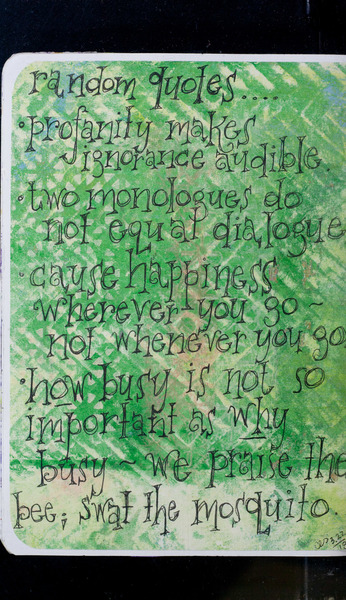 random quotes....
• profanity makes
ignorance audible.
• two monologues do
not equal dialogue
• cause happiness
wherever you go ~
not whenever you go
• how busy is not so
important as why
busy ~ we praise the
bee; swat the mosquito.